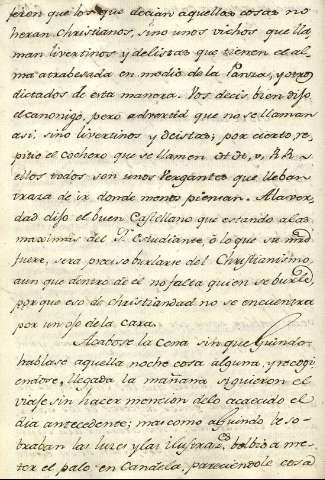 feren que los que decian aquellas cosas no
heran Christianos, sino unos vichos que lla
man livertinos y delistas que tienen el al
ma atrabesada en medio de la Panza, y otros
dictados de esta manera. Vos decis bien dijo
el canonigo, pero advertid que no se llaman
asi, sino livertinos y deistas; por cierto, re
pitio el cochero que se llamen
ellos todos son unos Vergantes que lleban
traza de ir donde menos piensan. A la ver
dad dijo el buen Castellano que estando a las
maximas del S.r Estudiante, ò lo que su md
fuere, sera preciso burlarse del Christianismo,
aun que dentro de el no falta quien se burle,
por que eso de christiandad no se encuentra
por un ojo de la cara.
Acabose la Cena sin que Guindo
hablase aquella noche cosa alguna, y recogi
endose, llegada la mañana siguieron el
viaje sin hacer mencion de lo acaecido el
dia antecedente; mas como a Guindo le so-
braban las luces y las bolbio a me-
ter el palo en Candela, pareciendole cosa